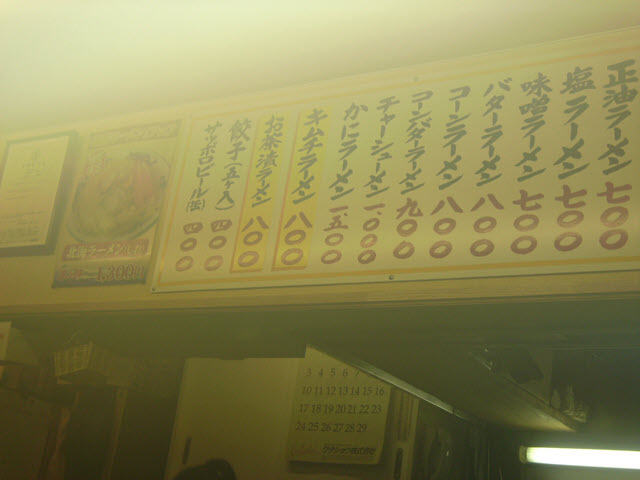 正油ラーメン 七〇〇
塩ラーメン 七〇〇
味噌ラーメン 七〇〇
バターラーメン 八〇〇
コーンラーメン 八〇〇
コーンバターラーメン 九〇〇
チャーシューメン 一、〇〇〇
かにラーメン 一、五〇〇
キムチラーメン 八〇〇
お茶漬ラーメン 八〇〇
餃子(五ヶ入) 四〇〇
サッポロビール 四〇〇
1,300
3 4 5 6 7
10 11 12 13 14 15 16
17 18 19 20 21 22 23
24 25 26 27 28 29